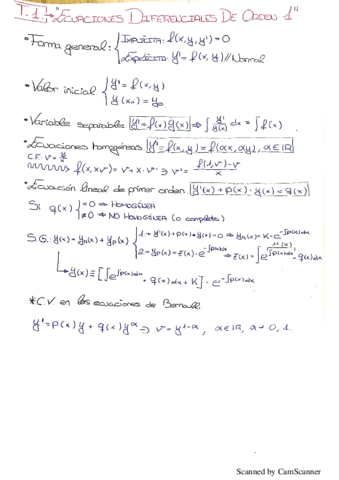 T.1 → "ECUACIONES DIFERENCIALES DE ORDEN 1"
• Forma general: { IMPLÍCITA: f(x, y, y') = 0
EXPLÍCITA: y' = f(x, y) // Normal
• Valor inicial { y' = f(x, y)
y(x₀) = y₀
• Variables separables y' = f(x) g(x) ⇒ ∫ y'/g(x) dx = ∫ f(x)
• Ecuaciones homogéneas y' = f(x, y) = f(αx, αy), α ∈ ℝ
C.F. v = y/x
f(x, xv) = v + x · v' ⇒ v' = f(1, v) - v / x
• Ecuación lineal de primer orden y'(x) + p(x) · y(x) = q(x)
Si q(x) { = 0 ⇒ HOMOGÉNEA
≠ 0 ⇒ NO HOMOGÉNEA (o completa)
S.G.: y(x) = yₕ(x) + yₚ(x) { 1 → y'(x) + p(x) · y(x) = 0 ⇒ yₕ(x) = K · e^-∫p(x)dx
2 → yₚ(x) = z(x) · e^-∫p(x)dx ⇒ z(x) = ∫ e^∫p(x)dx · q(x) dx
μ(x)
y(x) = [∫ e^∫p(x)dx · q(x) dx + K] · e^-∫p(x)dx
* C.V. en las ecuaciones de Bernoulli
y' = p(x) y + q(x) y^α ⇒ v = y^1-α, α ∈ ℝ, α ≠ 0, 1.
Scanned by CamScanner